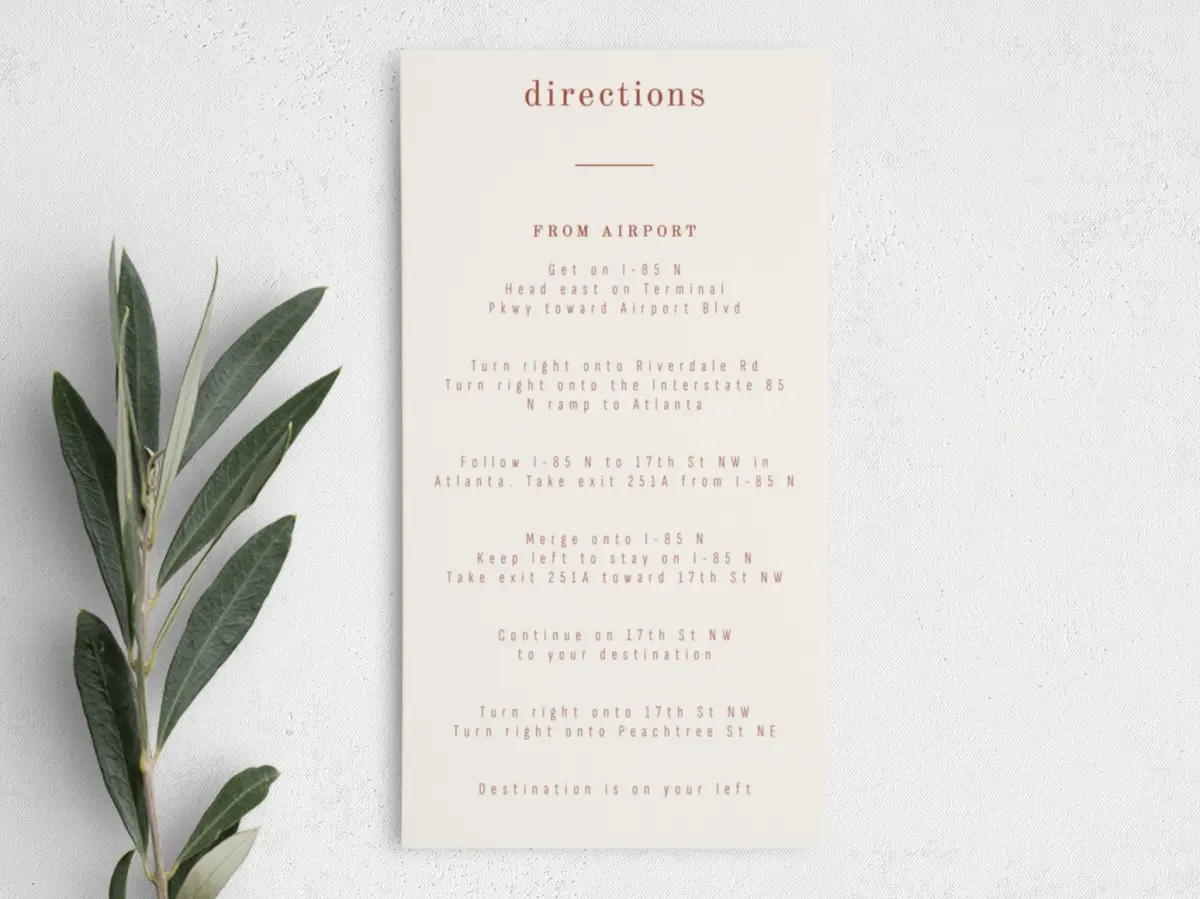 directions
FROM AIRPORT
Get on I-85 N
Head east on Terminal
Pkwy toward Airport Blvd
Turn right onto Riverdale Rd
Turn right onto the Interstate 85
N ramp to Atlanta
Follow I-85 N to 17th St NW in
Atlanta. Take exit 251A from I-85 N
Merge onto I-85 N
Keep left to stay on I-85 N
Take exit 251A toward 17th St NW
Continue on 17th St NW
to your destination
Turn right onto 17th St NW
Turn right onto Peachtree St NE
Destination is on your left